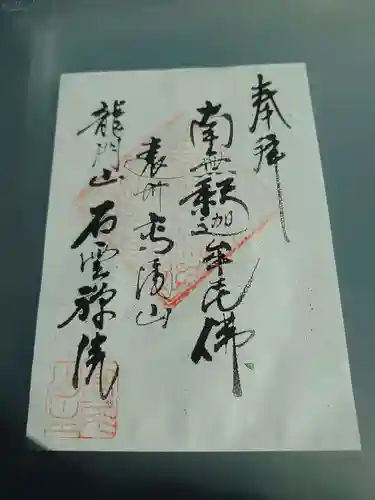 奉拝
南無釈迦牟尼佛
遠州高源山
龍門山
石雲禅院